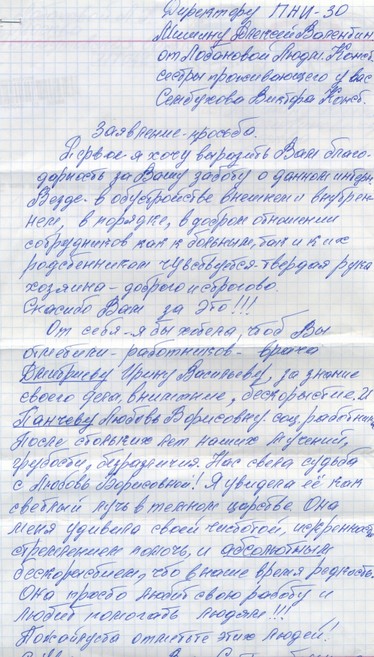 Директору ПНИ-30
Мишину Алексею Валентин.
от Лобановой Людм. Конст.
сестры проживающего у вас
Сембухова Виктора Конст.
Заявление-просьба.
Первое я хочу выразить Вам благо-
дарность за Вашу заботу о данном интерн.
Везде- в обустройстве внешнем и внутрен-
нем в порядке, в добром отношении
сотрудников как к больным, так и к их
родственникам чувствуется твердая рука
хозяина - доброго и строгого
Спасибо Вам за это!!!
От себя - я бы хотела, чтоб Вы
отметили - работников - врача
Дмитриеву Ирину Васильевну, за знание
своего дела, внимание, бескорыстие. И
Панчеву Любовь Борисовну соц. работник
После стольких лет наших мучений,
грубости, безразличия. Нас свела судьба
с Любовь Борисовной! Я увидела её как
светлый луч в темном царстве. Она
меня удивила своей чистотой, искренност.
стремлением помочь, и абсолютным
бескорыстием, что в наше время редкость.
Она просто любит свою работу и
любит помогать людям!!!
Пожалуйста отметьте этих людей!